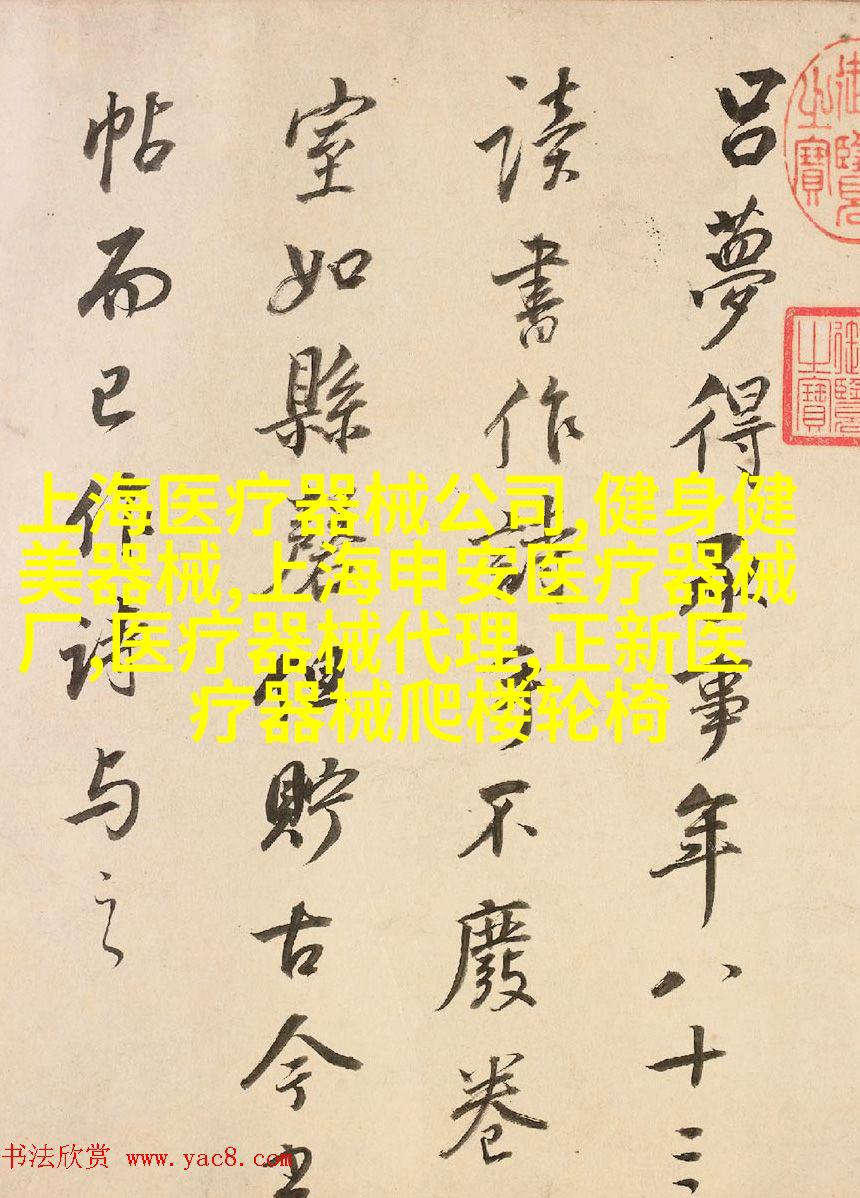 御覽之寶
御覽之寶
吕夢得承事年八十三
讀書作詩手不廢卷
室如縣罄但貯古今
帖而已作詩与之
上海医疗器械公司,健身健
美器械,上海申安医疗器械
厂,医疗器械代理,正新医
疗器械爬楼轮椅
书法欣赏 www.yac8.com